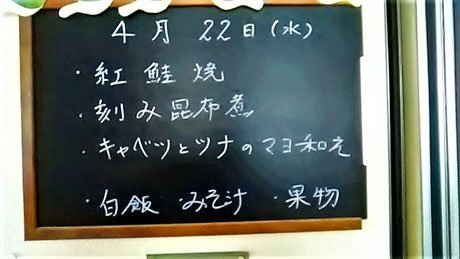 4月22日(水)
・紅鮭焼
・刻み昆布煮
・キャベツとツナのマヨ和え
・白飯 ・みそ汁 ・果物